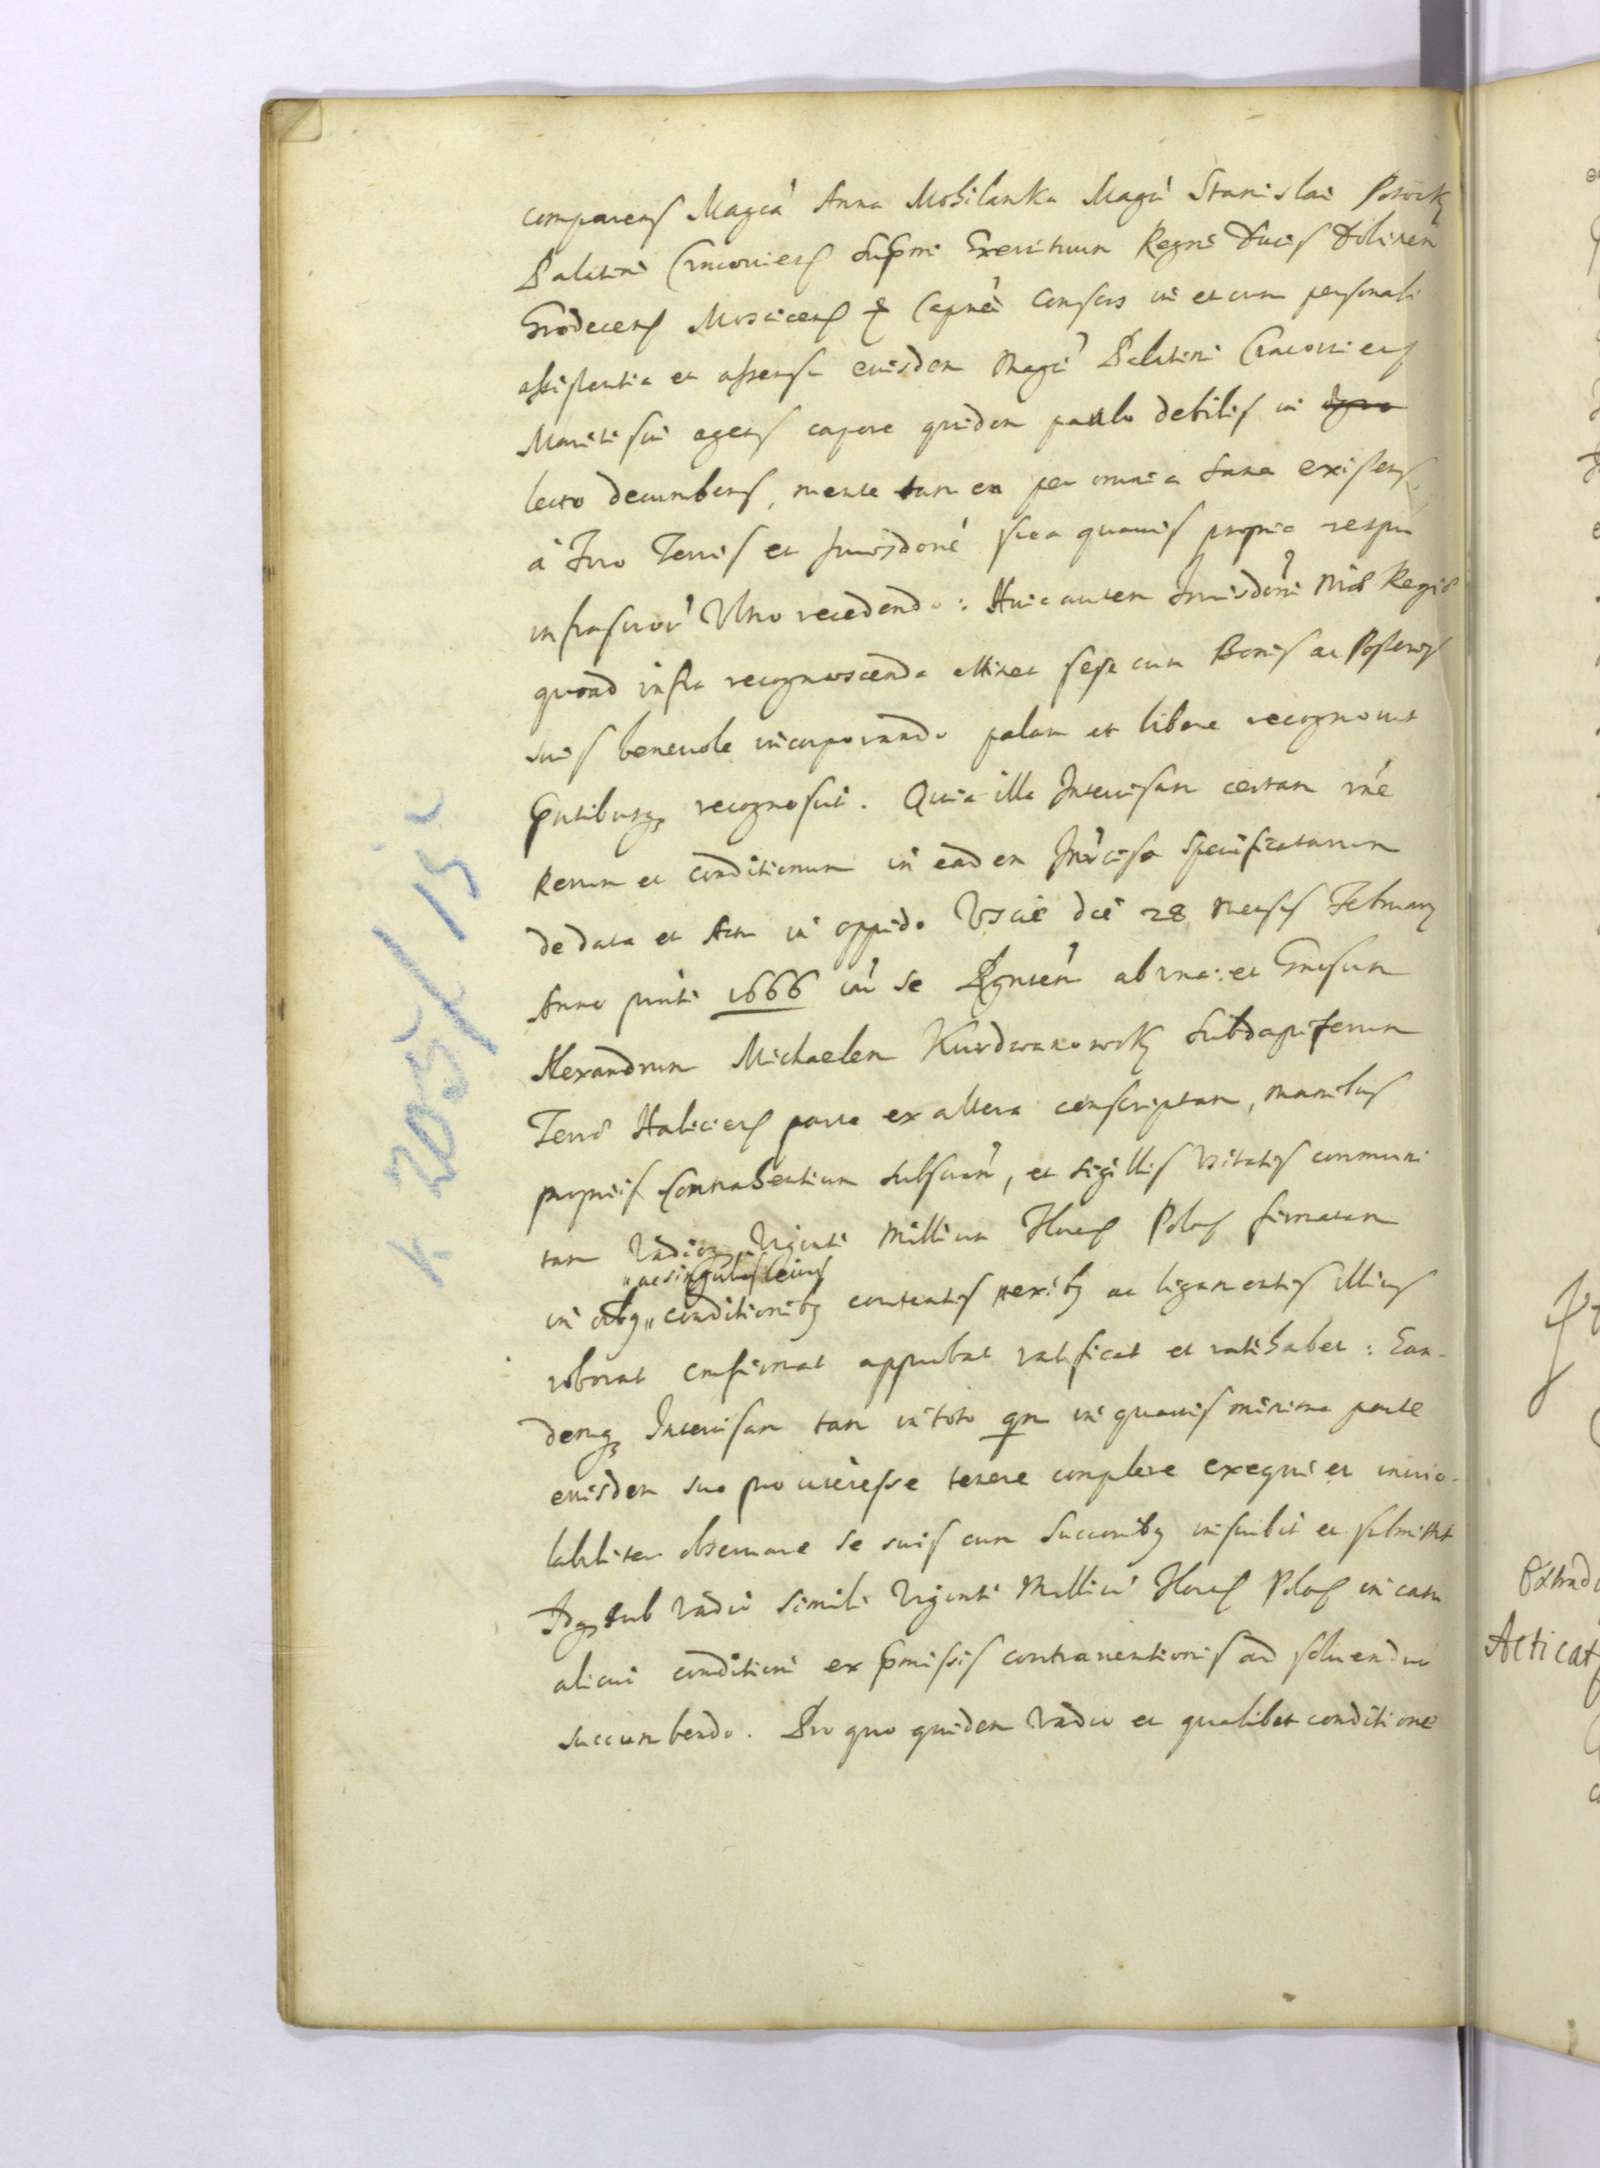 comparens Magca Anna Mohilanka Magci Stanislai Potocky
Palatini Cracoviens Supmi Exercituum Regni Ducis
Grodecens Moscicens & Capnei Consors in et cum personali
assistentia et assensu eiusdem Magci Palatini Cracoviens
Mariti sui agens corpore quidem paulo debilis in
lecto decumbens, mente tamen per omnia sana existens
à Foro Terris et Jurisdone sua quavis propria respu
infrascrou Ultro recedendo: Huic autem Jurisdoni Regis
quoad infra recognoscenda attinet sese cum Bonis ac Posteris
suis benevole incorporando palam et libere recognovit
Pntibusqz recognoscit. Quia illa Intercisam certam rne
Rerum et conditionum in eadem Intercisa specificatarum
de data et Actu in oppido Uscie die 28 Mensis February
Anno pnti 1666 int se Rgnten ab una: et Gnosum
Alexandrum Michaelem Kurdwanowsky Subdapiferum
Terrae Haliciens parte ex altera conscriptam, manibus
propriis Contrahentium Subscriu, et sigillis usitatis communi
tam Vadioqz Viginti Millium Floren Polon firmatam
"ac singulis eius
in oibqz" conditionibqz contentis nexibqz ac ligamentis illius
roborat confirmat approbat ratificat et ratihabet: Ean-
demqz Intercisam tam in toto qm in quavis minima parte
eiusdem suo pro interesse tenere complere exequi et invio-
labiliter observare se suis cum Succoribqz inscribit et submittit
Idqz sub Vadio simili Viginti Millium Floren Polon in casu
alicui conditioni ex Pmissis contraventionis ad solvendum
succumbendo. Pro quo quidem Vadio et qualibet conditione
k. 205/15
Extrad
Acticat